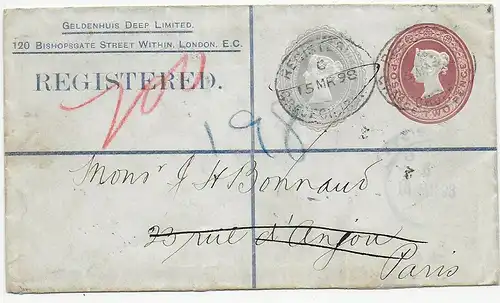 Geldenhuis Deep Limited.
120 Bishopsgate Street Within, London, E.C.
REGISTERED.
REGISTERED
C
15 MR 98
198
Monsr J H Bonnaud
23 rue d'Anjou
Paris